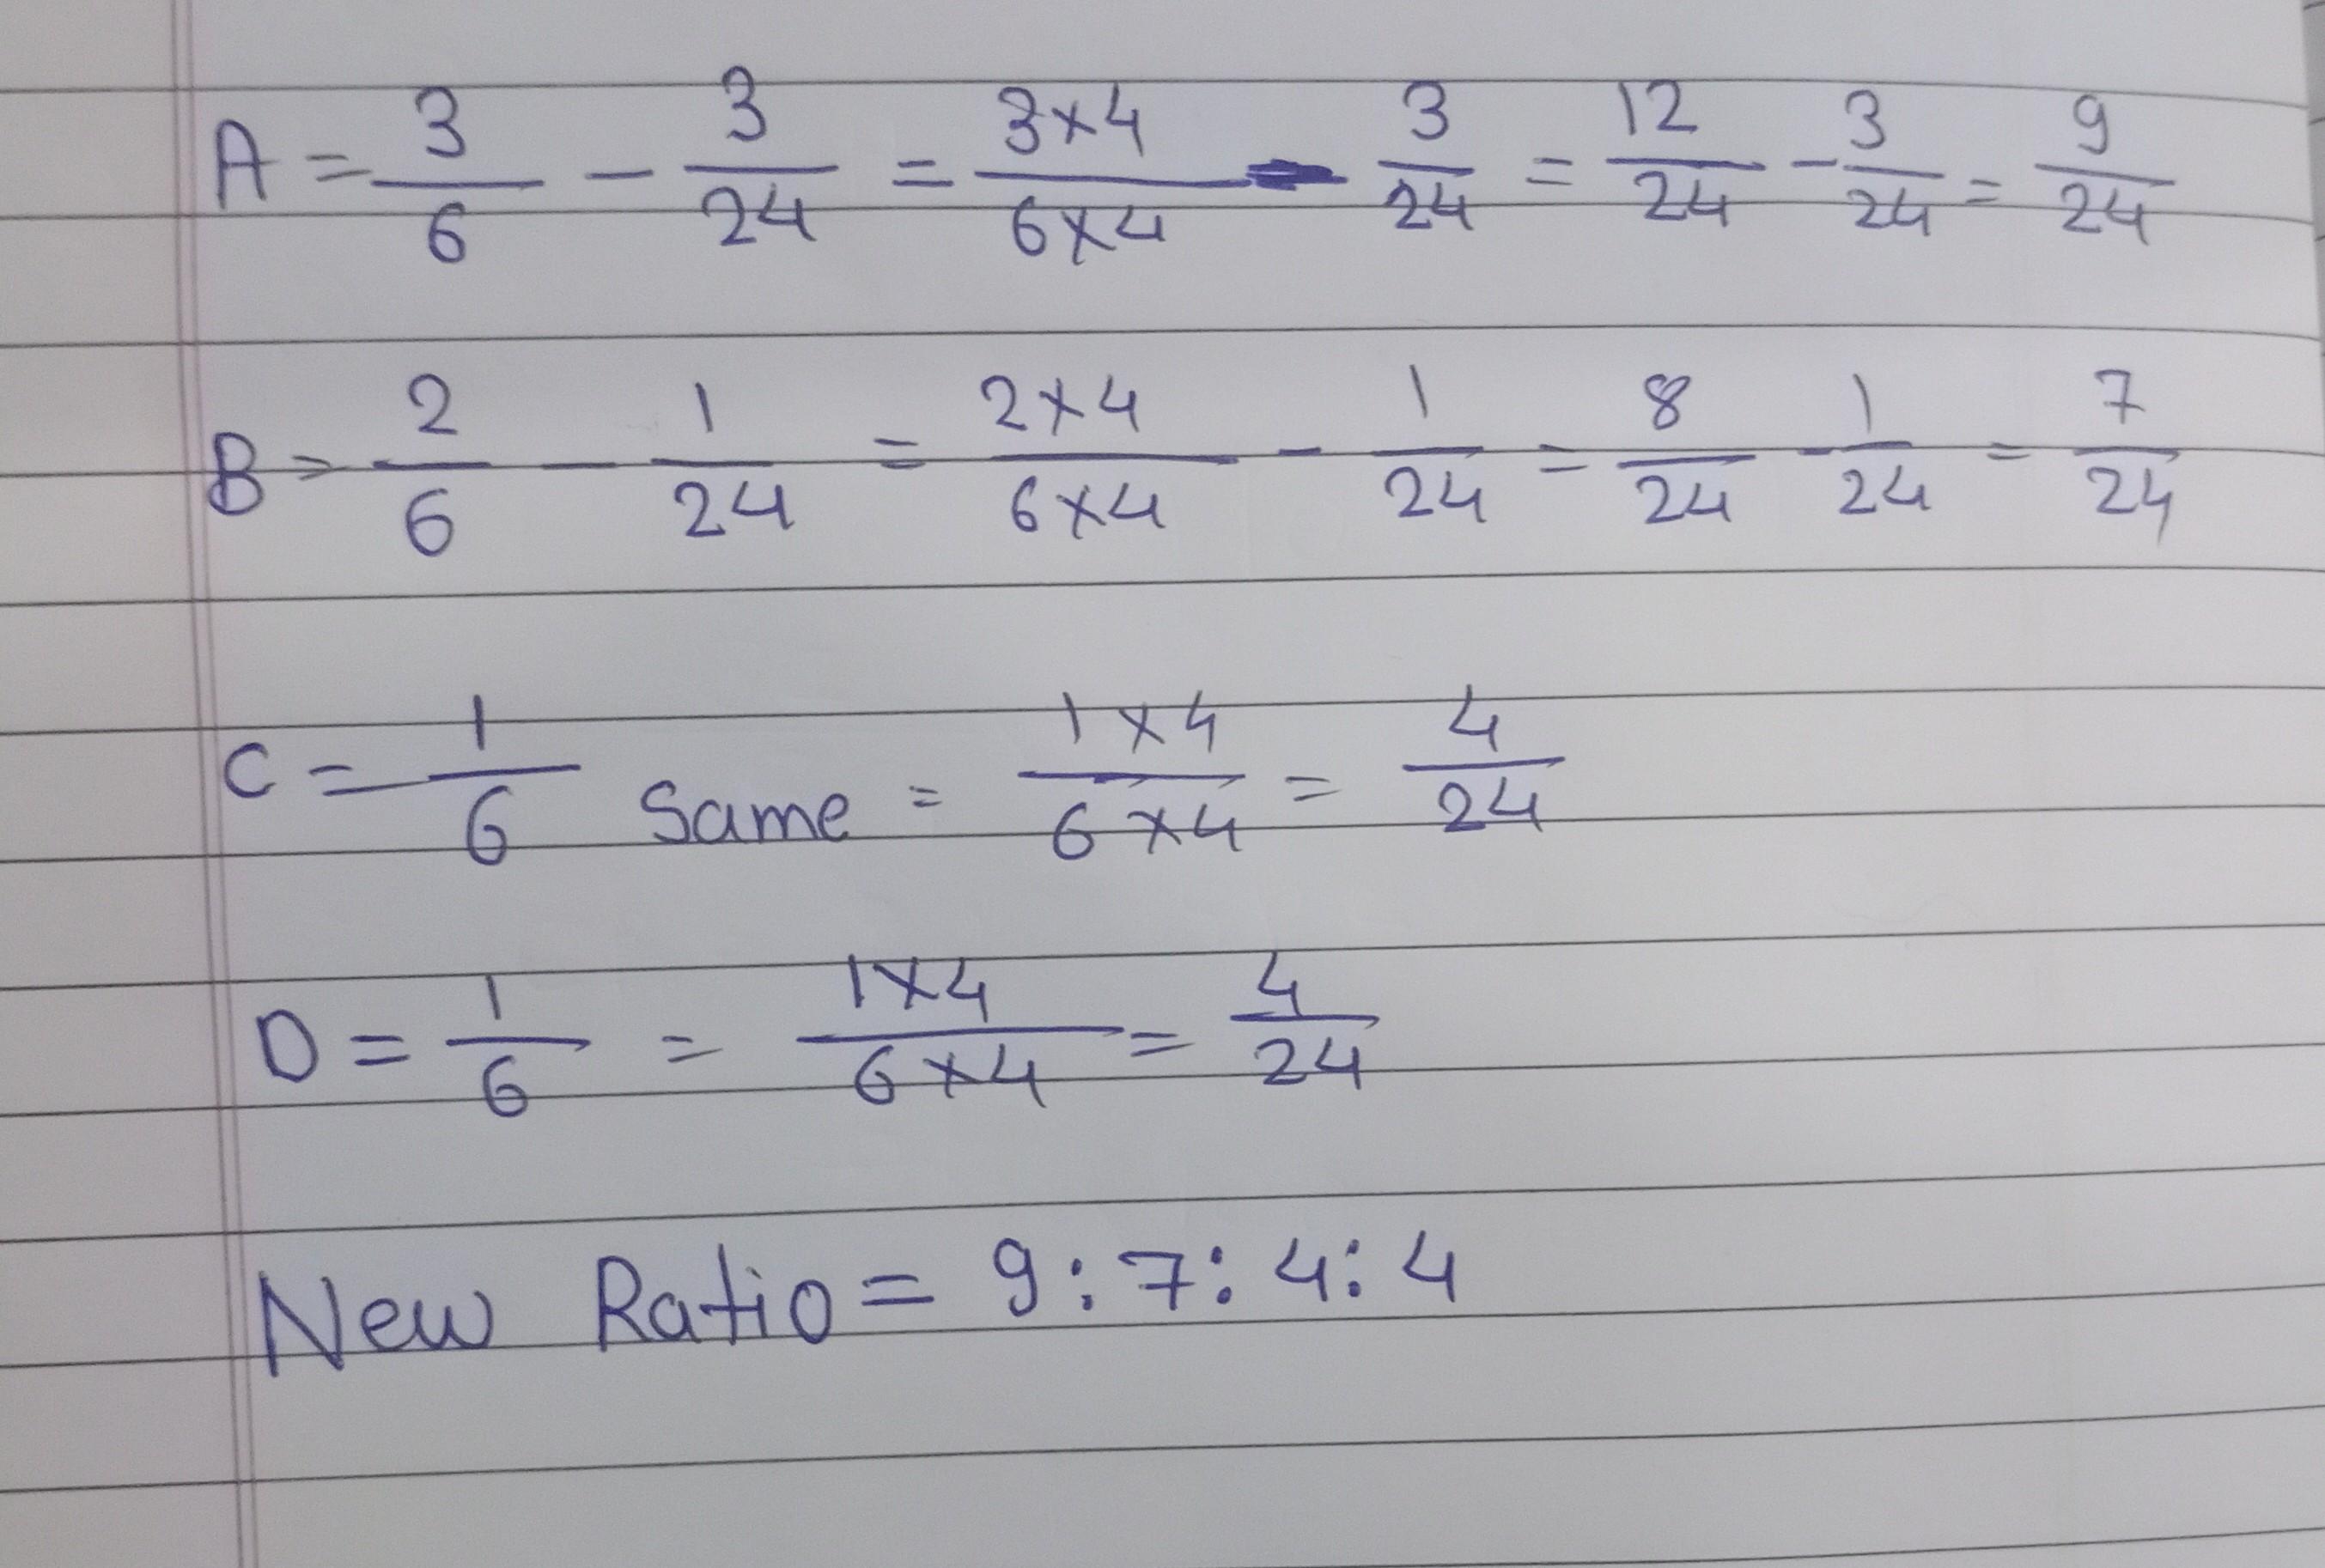 A = 3/6 - 3/24 = 3×4/6×4 - 3/24 = 12/24 - 3/24 = 9/24
B = 2/6 - 1/24 = 2×4/6×4 - 1/24 = 8/24 - 1/24 = 7/24
C = 1/6 Same = 1×4/6×4 = 4/24
D = 1/6 = 1×4/6×4 = 4/24
New Ratio = 9:7:4:4